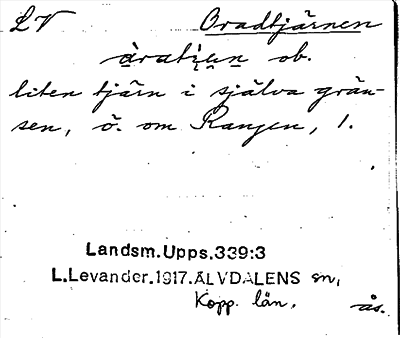 LV Oradtjärnen
àratįęn ob.
liten tjärn i själva grän-
sen, ö. om Rangen, 1.
Landsm. Upps. 339:3
L. Levander. 1917. ÄLVDALENS sn,
Kopp. län. ås.